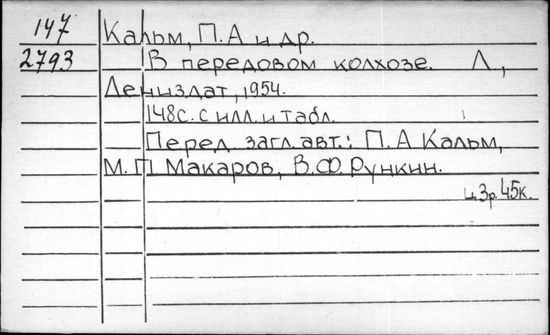 147
Кальм, П.А и др.
2793
В передовом колхозе. Л.,
Лениздат, 1954.
148с. с илл. и табл.
Перед загл. авт.: П.А Кальм,
М.П Макаров, В.Ф. Рункин.
ц 3р. 45к.